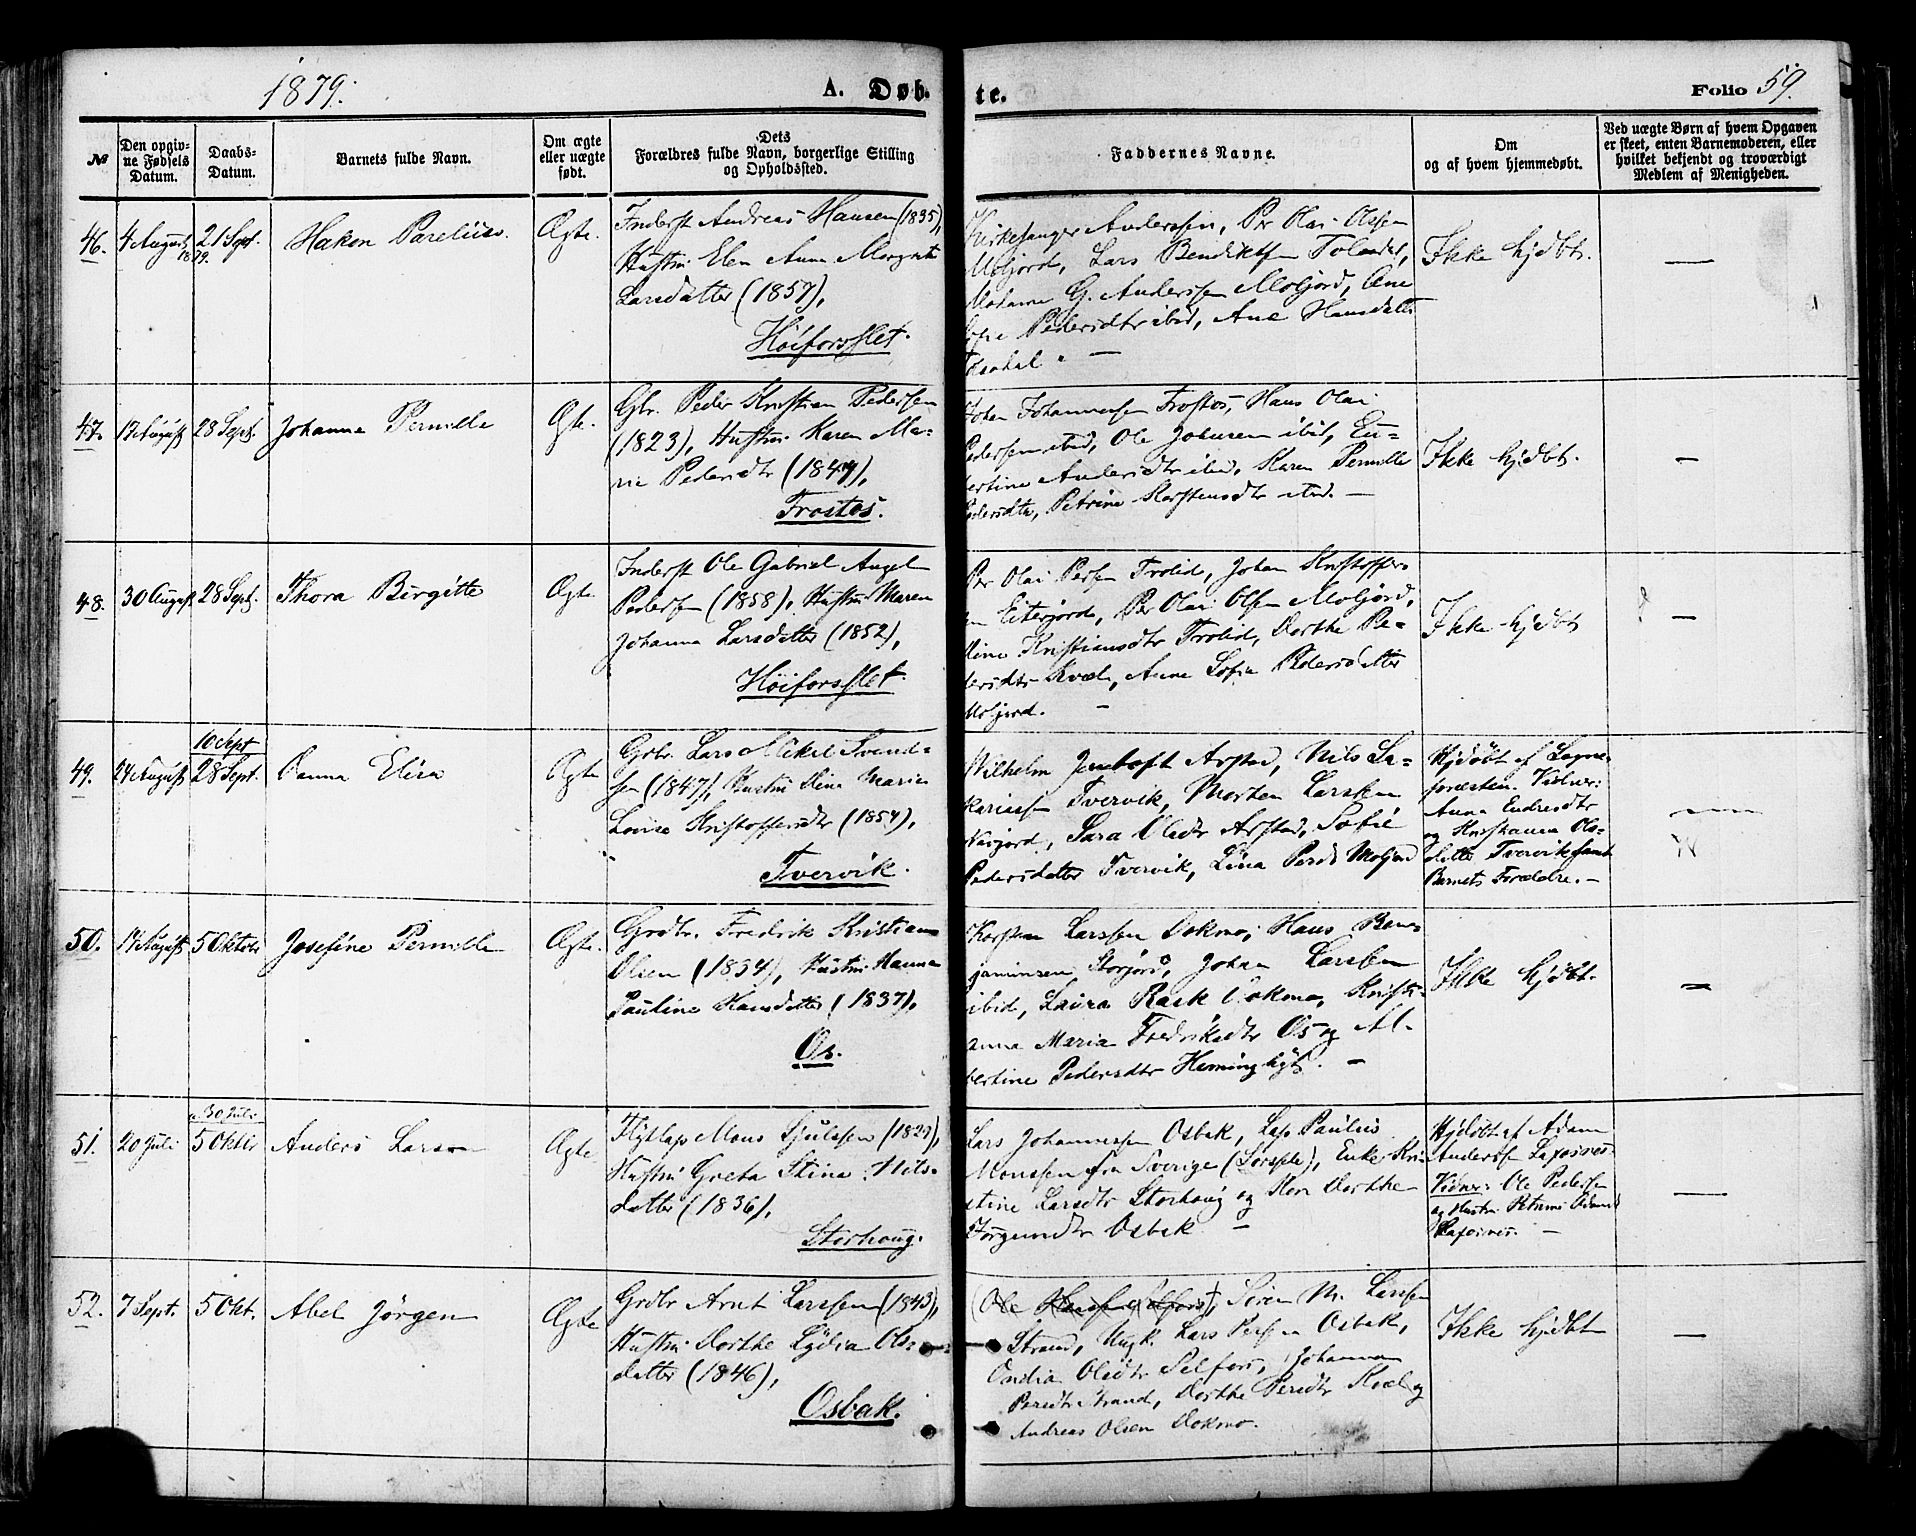 1879.
A. Døb-
te.
Folio 59.
№
Den opgiv-
ne Fødsels
Datum.
Daabs-
Datum.
Barnets fulde Navn.
Om ægte
eller uægte
født.
Dets
Forældres fulde Navn, borgerlige Stilling
og Opholdssted.
Faddernes Navne.
Om
og af hvem hjemmedøbt.
Ved uægte Børn af hvem Opgaven
er skeet, enten Barnemoderen, eller
hvilket bekjendt og troværdigt
Medlem af Menigheden.
46.
4 August
1879.
21 Sept.
Hakon Parelius.
Ægte.
Inderst Andreas Hansen (1835),
Hustru Elen Anna Margrete
Larsdatter (1857),
Höiforsslet.
Kirkesanger Anderssen, Per Olai Olssen
Moljord, Lars Bendiktsen Tolaadal,
Madame G. Anderssen Moljord, Ane
Sofie Pedersdtr ibid, Ane Hansdatter
Ikke hjdbt.
—
47.
17 August
28 Sept.
Johanna Pernille
Ægte.
Gbr. Peder Kristian Pedersen
(1823), Hustru Karen Ma-
rie Pedersdtr (1844),
Trostos.
Johan Johannessen Trostos, Hans Olai
Pederssen ibid, Ole Johnsen ibid, Eu-
bertine Andersdtr ibid, Karen Pernille
Pedersdtr, Petrine Karstensdtr ibid. —
Ikke hjdbt.
—
48.
30 August
28 Sept.
Thora Birgitte
Ægte.
Inderst Ole Gabriel Angel
Pedersen (1858), Hustru Maren
Johanna Larsdatter (1852),
Höiforsslet.
Per Olai Persen Trolid, Johan Kristoffer-
sen Eiterjord, Per Olai Olsen Moljord,
Kristiansdtr Trolid, Dorthe Pe-
dersdtr Kvæl, Anne Sofie Pedersdatter
Moljord. —
Ikke hjdbt
—
49.
24 August
10 Sept
28 Sept.
Oanna Elisa
Ægte
Grbr. Lars Mikal Svend-
sen (1847), Hustru Stina Maria
Lovise Kristoffersdtr (1854),
Tvervik.
Wilhelm Jentoft Arstad, Nils Za-
kariassen Tvervik, Morten Larssen
Nesjord, Sara Olsdtr Arstad, Sofie
Pedersdatter Tvervik, Lina Persdr Moljord
Hjdöbt af Sogne-
præsten. Vidner:
Anna Endresdtr
og Kristianna Ols-
datter Tvervik samt
Barnets Forældre. —
50.
14 August
5 Oktobr
Josefine Pernille
Ægte.
Grdbr. Fredrik Kristian
Olsen (1834), Hustru Hanna
Pauline Hansdatter (1837),
Os.
Karsten Larssen Dokmo, Hans Ben-
jaminsen Storjord, Johan Larssen
ibid, Laura Rask Dokmo, Kristi-
anna Maria Fredriksdtr Os og Al-
bertine Pedersdtr Hemmingligt. —
Ikke hjdbt.
—
51.
20 Juli
30 Juli
5 Oktbr
Anders Larsen
Ægte
Flytlap Mons Sjulssen (1827),
Hustru Greta Stina Nils-
datter (1836),
Storhoug.
Lars Johannessen Osbak, Lap Paulus
Monssen fra Sverige (Sorsele), Enke Kri-
stine Larsdtr Storhoug og Kone Dorthe
Jörgensdtr Osbak —
Hjdöbt af Adam
Andersen Laxosnes.
Vidner: Ole Pedersen
og Hustru Petrine Adamsd
Laxosnes. —
—
52.
7 Sept.
5 Okt.
Abel Jörgen
Ægte
Grdbr Arnt Larssen (1843),
Hustru Dorthe Lydia Ols-
datter (1846),
Osbak.
Sören M. Larssen
Strand, Ungk. Lars Persen Osbak,
Ondia Olsdtr Selfors, Johanna
Persdtr Strand, Dorthe Persdtr Kvæl og
Andreas Olsen Dokmo.
Ikke hjdbt
—